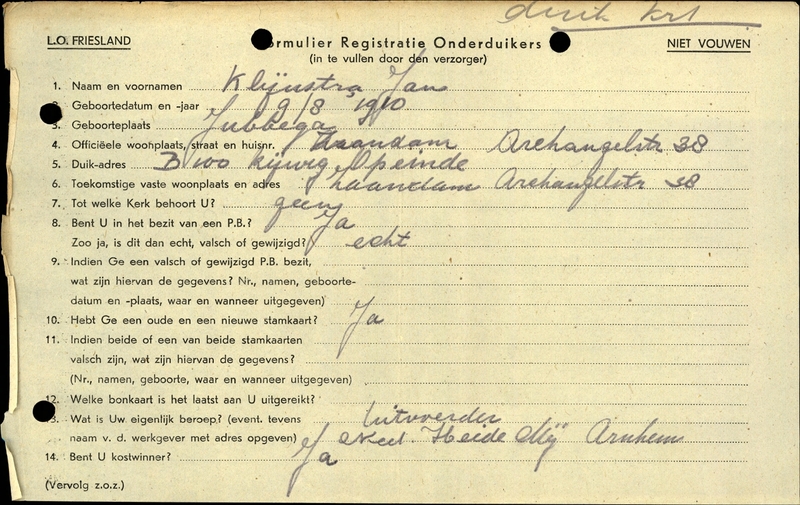 duik krt
L.O. FRIESLAND
Formulier Registratie Onderduikers
NIET VOUWEN
(in te vullen door den verzorger)
1. Naam en voornamen Klijnstra Jan
2. Geboortedatum en -jaar 9/8 1910
3. Geboorteplaats Jubbega
4. Officiëele woonplaats, straat en huisnr. Zaandam Archangelstr 38
5. Duik-adres B 100 Opeinde
6. Toekomstige vaste woonplaats en adres Zaandam Archangelstr 38
7. Tot welke Kerk behoort U? geen
8. Bent U in het bezit van een P.B.? Ja
Zoo ja, is dit dan echt, valsch of gewijzigd? echt
9. Indien Ge een valsch of gewijzigd P.B. bezit,
wat zijn hiervan de gegevens? Nr., namen, geboorte-
datum en -plaats, waar en wanneer uitgegeven)
10. Hebt Ge een oude en een nieuwe stamkaart? Ja
11. Indien beide of een van beide stamkaarten
valsch zijn, wat zijn hiervan de gegevens?
(Nr., namen, geboorte, waar en wanneer uitgegeven)
12. Welke bonkaart is het laatst aan U uitgereikt?
13. Wat is Uw eigenlijk beroep? (event. tevens Uitvoerder
naam v. d. werkgever met adres opgeven) Ned. Heide Mij Arnhem
14. Bent U kostwinner? Ja
(Vervolg z.o.z.)